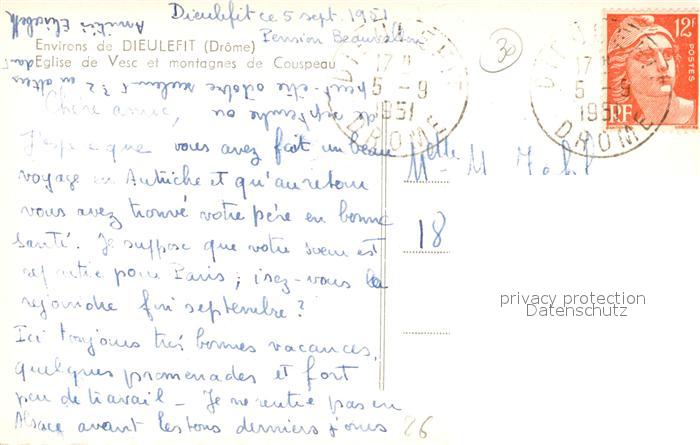 Dieulefit ce 5 sept. 1951
Pension Beauvallon
Environs de DIEULEFIT (Drôme)
Eglise de Vesc et montagnes de Couspeau
Chère amie,
J'espère que vous avez fait un beau
voyage en Autriche et qu'au retour
vous avez trouvé votre père en bonne
santé. Je suppose que votre soeur est
repartie pour Paris ; irez-vous la
rejoindre fin septembre ?
Ici toujours très bonnes vacances,
quelques promenades et fort
peu de travail – Je ne rentre pas en
Alsace avant les tous derniers jours
de septembre ou
peut-être octobre seulement
Amitiés Elisabeth
Melle M
18
30
26
12F
POSTES
RF
17 H
5 - 9
1951
DROME
DIEULEFIT
17 H
5 - 9
1951
DROME
privacy protection
Datenschutz